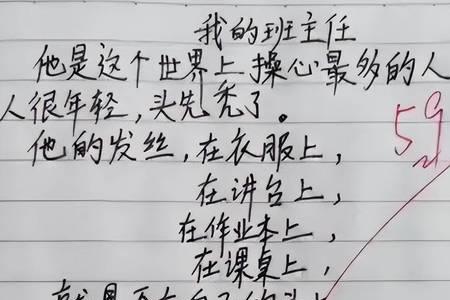 我的班主任
他是这个世界上操心最多的人
人很年轻，头先秃了。
他的发丝，在衣服上，
在讲台上，
在作业本上，
在课桌上，
59